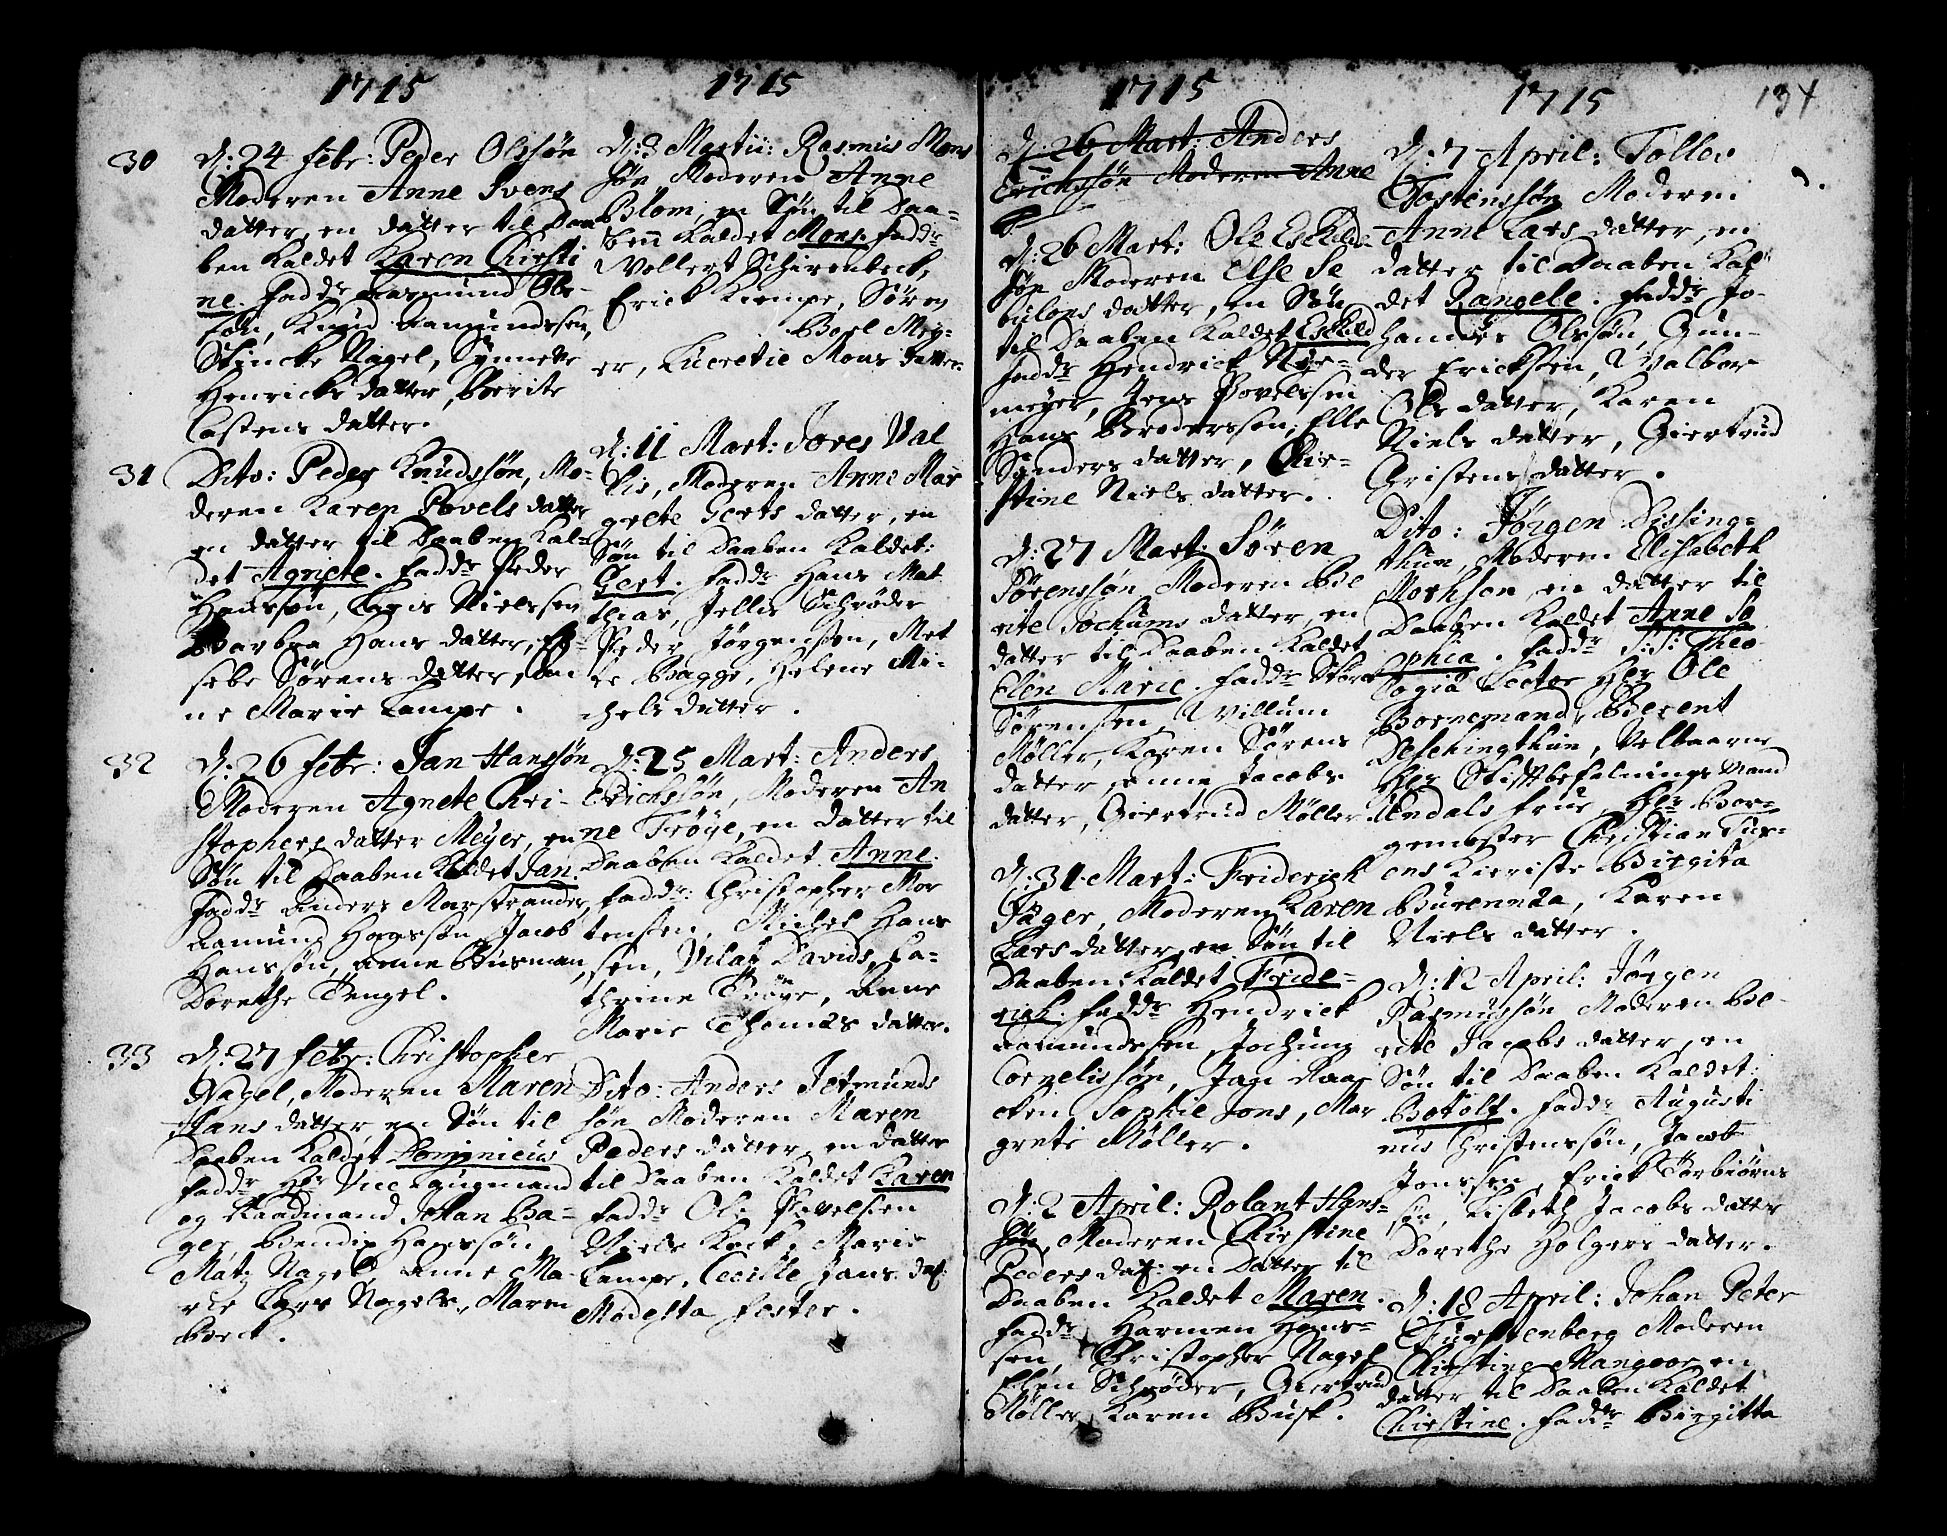 1715
30 D: 24 Febr: Peder Olssøn
Moderen Anne Ivens
datter, en datter til Daa
ben kaldet Karen Christi
ne. Fadd: Aasmund Ols-
søn, Knud Aamundssen,
Stincke Nagel, Synneve
Henrichs datter, Berite
Castens datter.
31 Dito: Peder Knudssøn, Mo-
deren Karen Povels datter
en datter til Daaben kal-
det Agnete. Fadd: Peder
Hanssøn, Nielssen
Barbra Hans datter,
sebe Sørens datter, An
ne Marie Kampe.
32 D: 26 Febr: Jan Hanssøn
Moderen Agnete Chri-
stophers datter Meyer, en
Søn til Daaben kaldet Jan.
Fadd: Anders Marstrander,
Aamund Hanssøn, Jacob
Hanssøn, Anne Busman,
Dorethe Pengel.
33 D: 27 Febr: Christopher
Nagel, Moderen Maren
Hans datter, en Søn til
Daaben kaldet Dominicus
Fadd: Hr Vice Laugmand
og Raadmand Johan Ga-
ger, Bendix Hanssøn
Matz Nagel, Anne Ma-
rie Lars Nagels, Maren
Borck.
1715
D: 3 Martii: Rasmus Mons
søn Moderen Anne
Blom, en Søn til Daa-
ben kaldet Mons. Fadd:
Wollert Schirenbeck,
Erick Kempe, Søren
Boel Mey-
er, Lucretie Mons datter.
D: 11 Mart: Jores Val
lis, Moderen Anne Mar
grete Gerts datter, en
Søn til Daaben kaldet:
Gert. Fadd: Hans Mat
thias, Jellis Schrøder
Peder Jørgensen, Met
te Bagge, Helene Mi-
chels datter.
D: 25 Mart: Anders
Erichssøn, Moderen An
ne Trøye, en datter til
Daaben kaldet Anne.
Fadd: Christopher Mor
tensen, Michel Hans
sen, Vilat Davids, Ca-
thrine Trøye, Anne
Marie Thomas datter.
Dito: Anders Jetmunds
søn Moderen Maren
Peders datter, en datter
til Daaben kaldet Karen
Fadd: Ole Povelsen
Niels Kock, Marie
Kampe, Cecille Jans dat:
Modesta Foster.
1715
D: 26 Mart: Anders
Erichssøn Moderen Anne
D: 26 Mart: Ole Eskilds
søn Moderen Else Se
bulons datter, en Søn
til Daaben kaldet Eskild
Fadd: Hendrick Nye-
meyer, Jens Povelssen
Hans Brodersson, Elle
Synders datter, Chir-
stine Niels datter.
D: 27 Mart: Søren
Sørenssøn Moderen Be
rite Jochums datter, en
datter til Daaben kaldet
Elen Marie. Fadd:
Sørensen, Willum
Møller, Karen Sørens
datter, Anne Jacobs
datter, Giertrud Møller
D: 31 Mart: Friderich
Jæger, Moderen Karen
Lars datter, en Søn til
Daaben kaldet Fride-
rich. Fadd: Hendrick
Aamundssen, Jochum
Cornelissøn, Jan Raa
cken, Sophie Jons, Mar
grete Møller.
D: 2 April: Rolant Hans-
søn, Moderen Chirstine
Peders dat: en Datter til
Daaben kaldet Maren.
Fadd: Harmen Hans-
sen, Christopher Nagel
Elen Schrøder, Giertrud
Møller, Karen Busk.
1715 134
D: 7 April: Tollev
Tostenssøn Moderen
Anne Lars datter, en
datter til Daaben kal
det Rangele. Fadd: Jo-
hannes Olssøn, Gun-
der Ericksen, Walbor
Ols datter, Karen
Niels datter, Giertrud
Christens datter.
Dito: Jørgen Dissing-
thun, Moderen Elisabeth
Morhson en datter til
Daaben kaldet Anne So
phia. Fadd: S: S: Theo
logiæ Lector Hr Ole
Bornemand, Berent
Deschingthun, Velbaarne
Hr Stiftbefalnings Mand
Undals Frue, Hr Bor-
gemester Christian Tux-
ens Kieriste Birgita
Burennæa, Karen
Niels datter.
D: 12 April: Jørgen
Rasmussøn Moderen Be-
rite Jacobs datter, en
Søn til Daaben kaldet:
Botolf. Fadd: Augusti
nus Christenssøn, Jacob
Jonssen, Erick Torbiørns
søn, Lisbeth Jacobs datter
Dorethe Holgers datter.
D: 18 April: Johan Peter
Furstenberg Moderen
Chirstine Mangoor en
datter til Daaben kaldet
Chirstine. Fadd: Birgitta